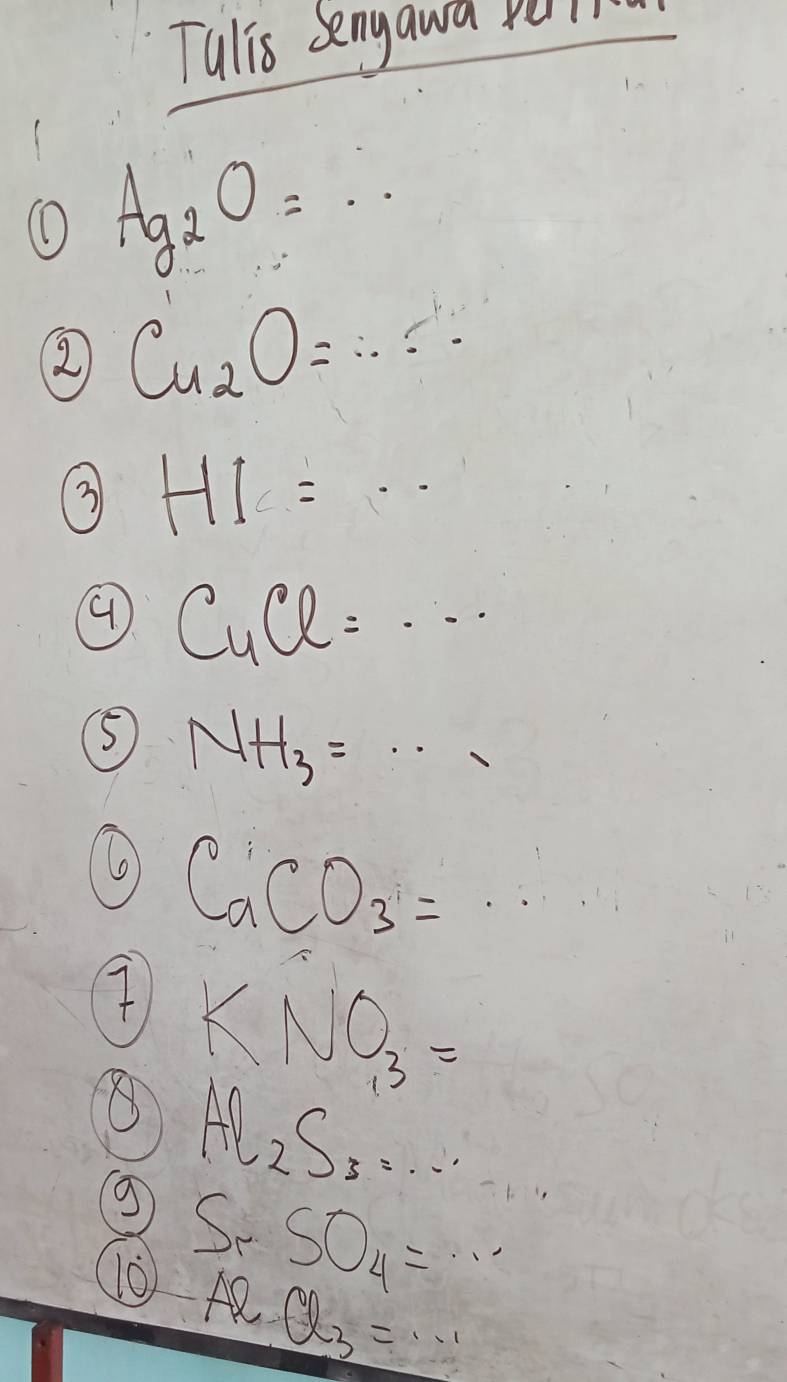 Tulis Senyawa Berikut
① Ag₂O = ...
② Cu₂O = ....
③ HI = ...
④ CuCl = ....
⑤ NH₃ = ...
⑥ CaCO₃ = ...
⑦ KNO₃ =
⑧ Al₂S₃ = ...
⑨ SrSO₄ = ...
⑩ AlCl₃ = ...